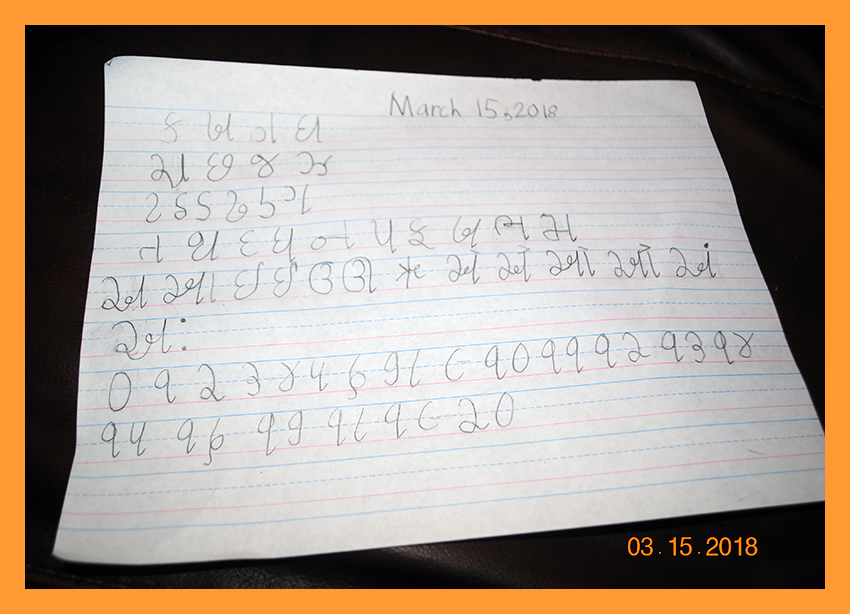 March 15, 2018
ક ખ ગ ઘ
ચ છ જ ઝ
ટ ઠ ડ ઢ ણ
ત થ દ ધ ન પ ફ બ ભ મ
અ આ ઇ ઈ ઉ ઊ ઋ એ ઐ ઓ ઔ અં
અઃ
૦ ૧ ૨ ૩ ૪ ૫ ૬ ૭ ૮ ૯ ૧૦ ૧૧ ૧૨ ૧૩ ૧૪
૧૫ ૧૬ ૧૭ ૧૮ ૧૯ ૨૦
03.15.2018